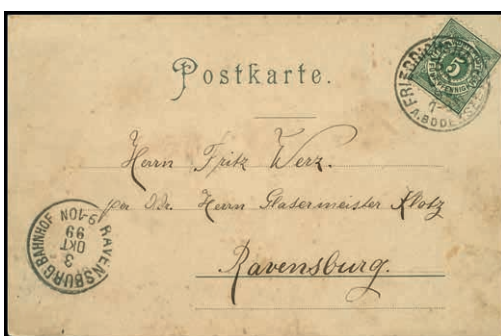 Postkarte.
5
PFENNIG
FRIEDRICHSHAFEN
A. BODENSEE
Herrn Fritz Werz.
Herrn Glasermeister Klotz
Ravensburg.
RAVENSBURG BAHNHOF
3
OKT
99
9-10N